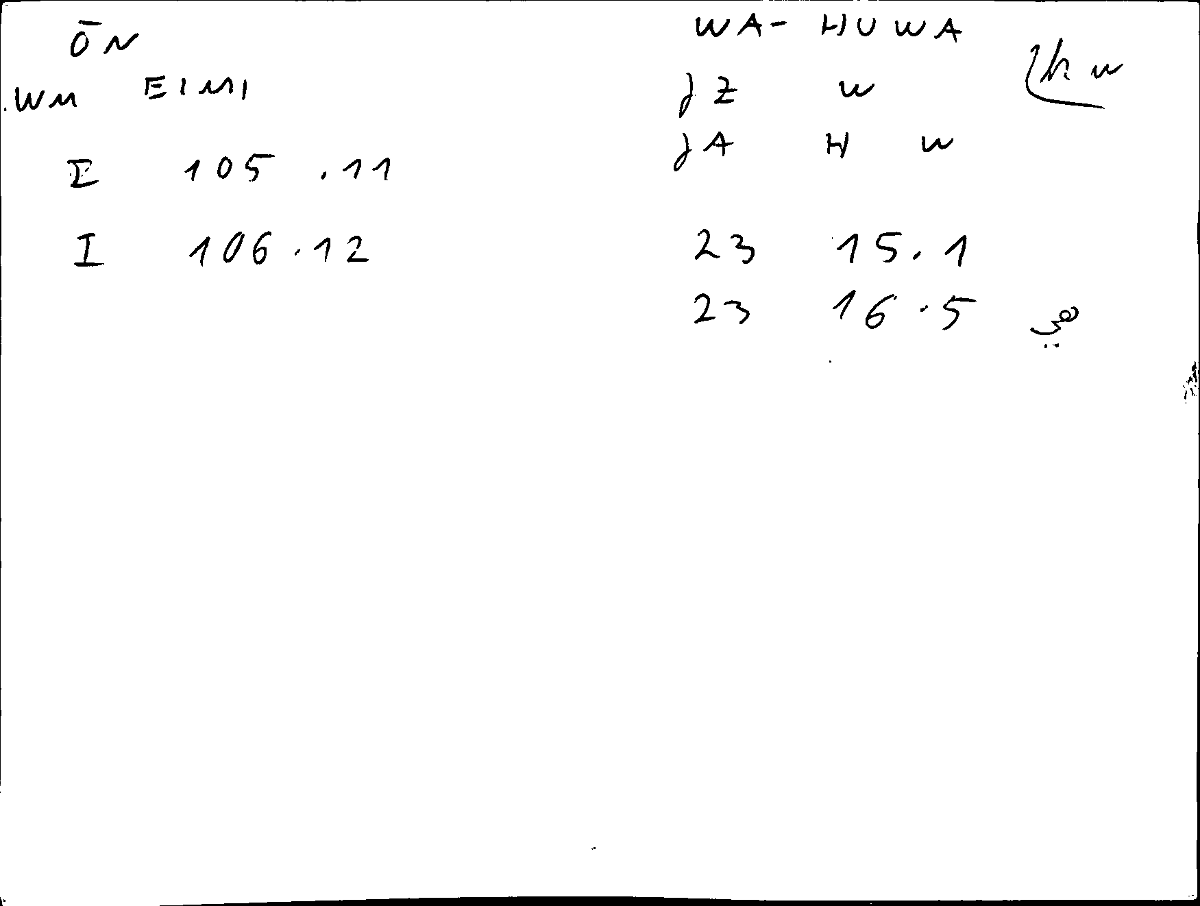 ŌN
WM EIMI
I 105.11
I 106.12
WA- HUWA
JZ W
JA H W
23 15.1
23 16.5